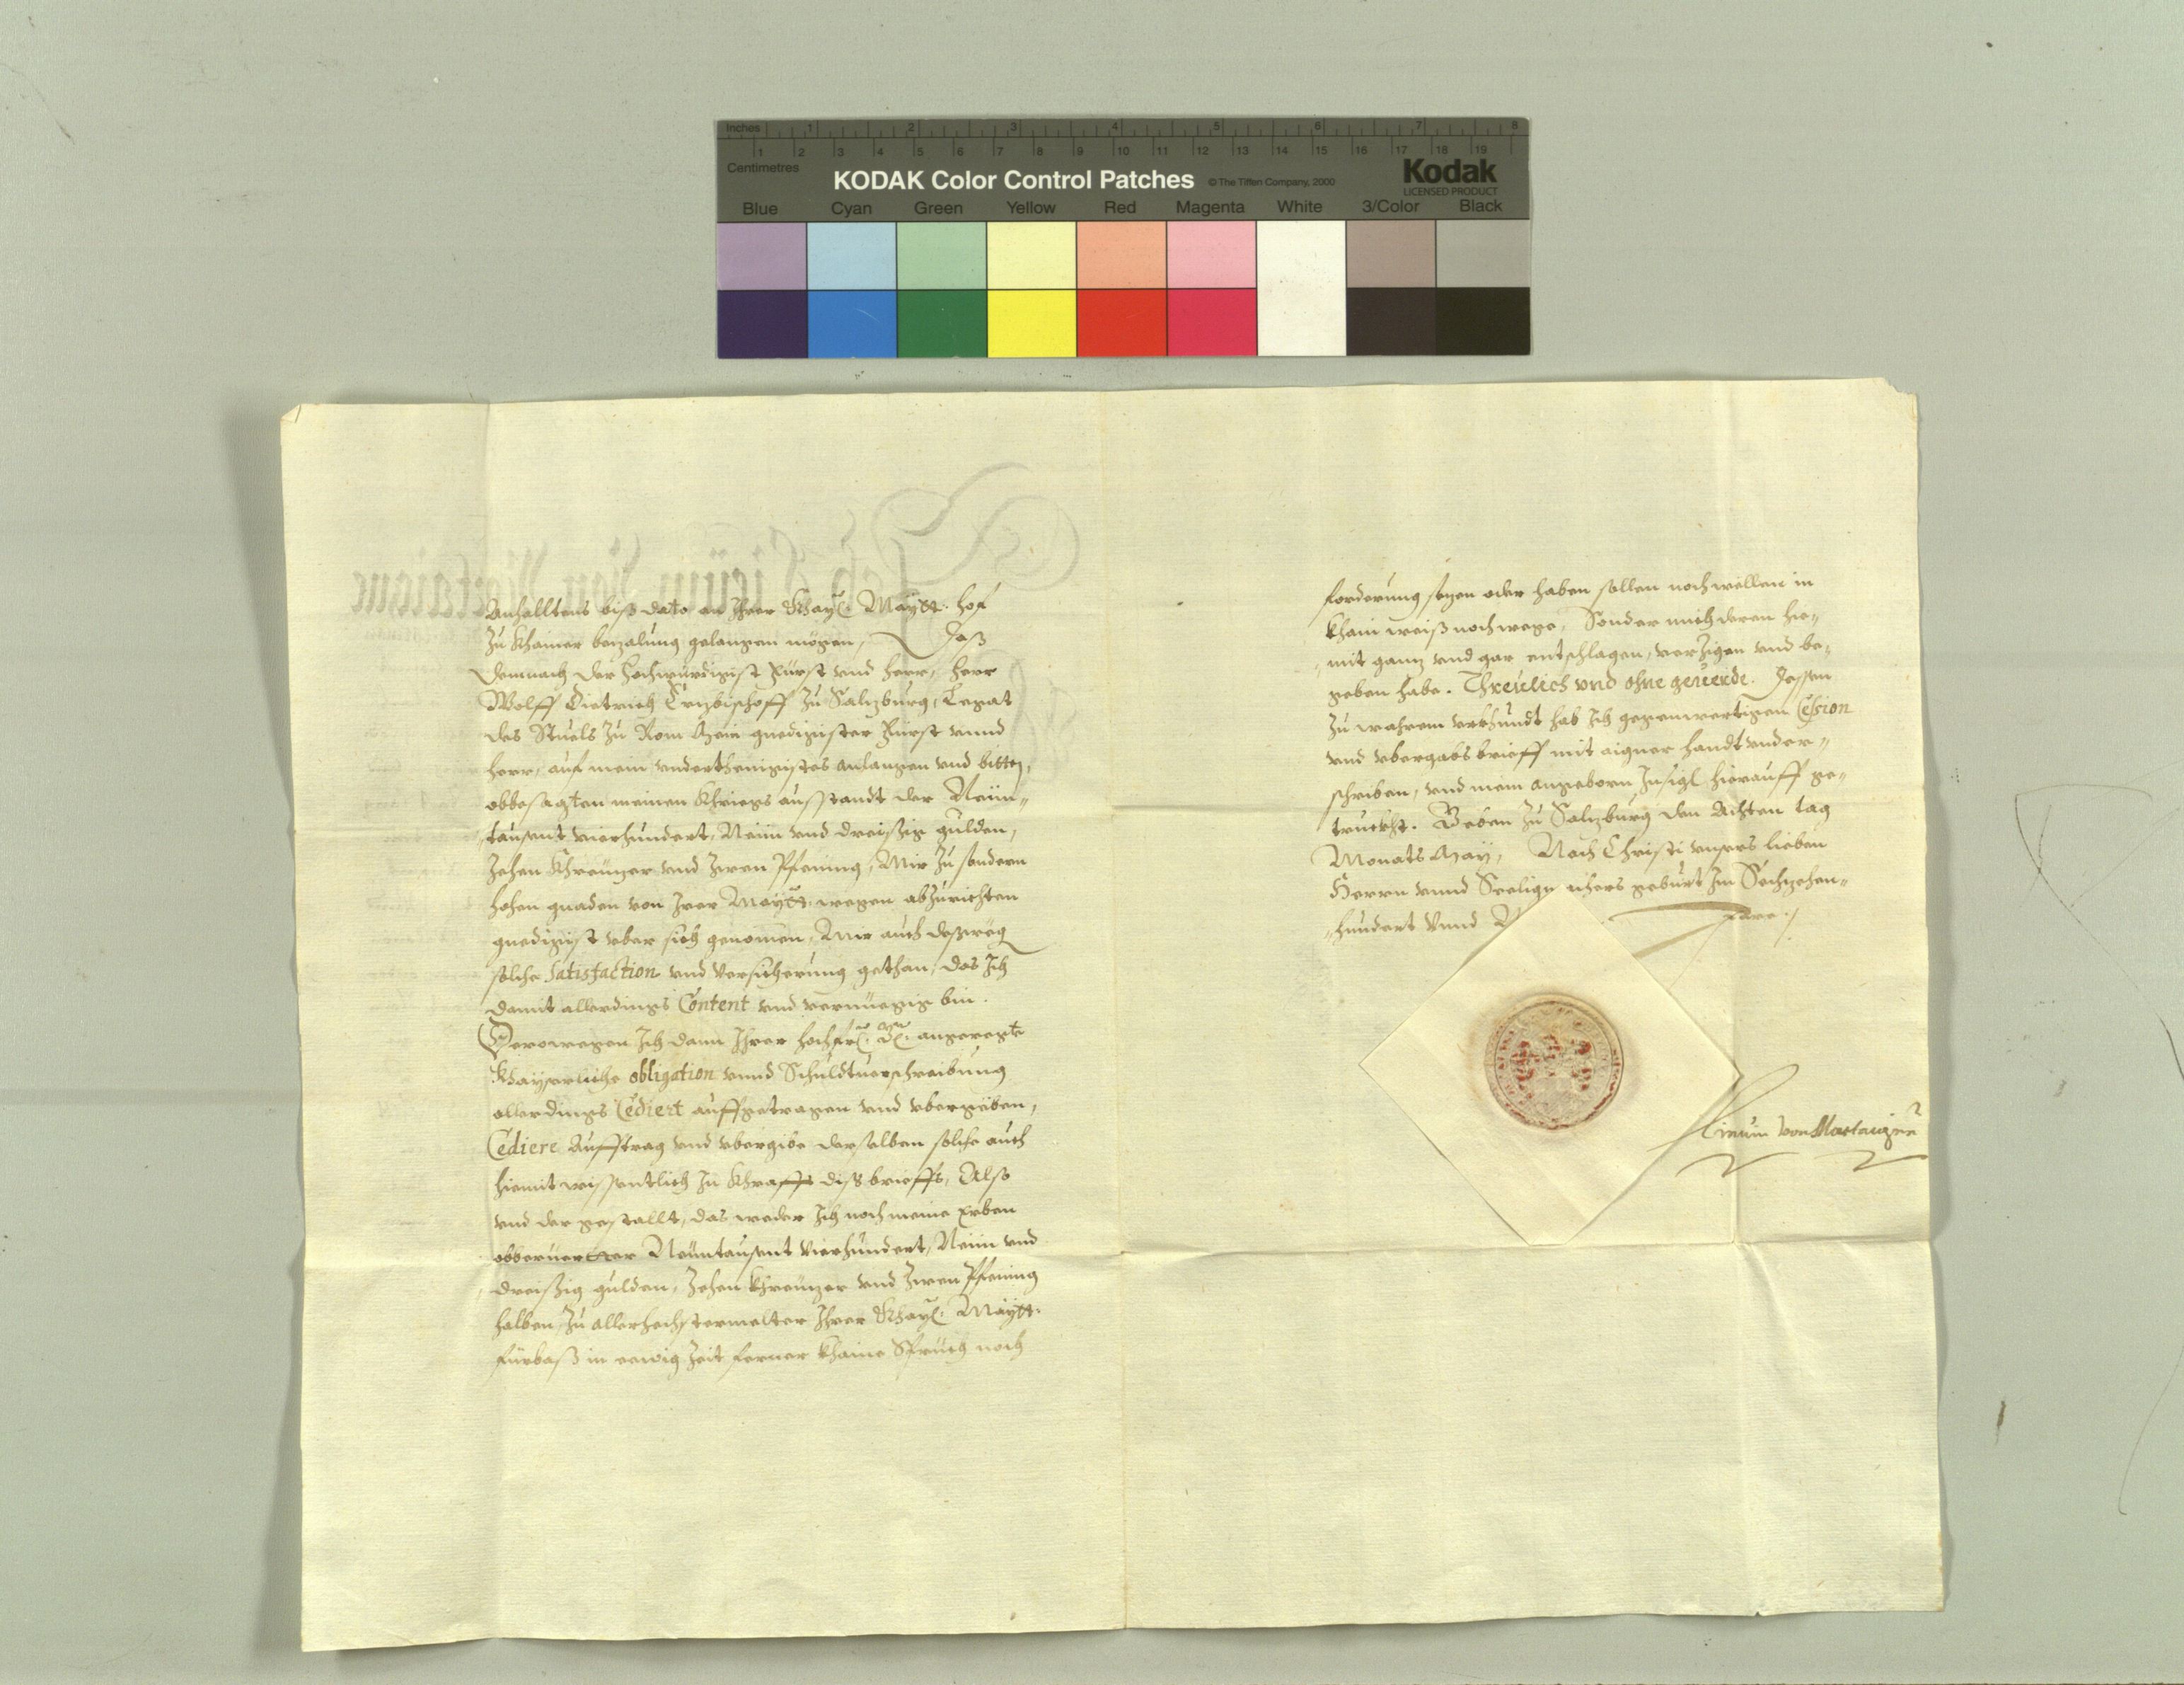 Inches 1 2 3 4 5 6 7 8
1 2 3 4 5 6 7 8 9 10 11 12 13 14 15 16 17 18 19
Centimetres
KODAK Color Control Patches © The Tiffen Company, 2000
Kodak
LICENSED PRODUCT
Blue Cyan Green Yellow Red Magenta White 3/Color Black
Anhalltens biß dato an Ihrer Khayl: Maytt: hof
zu khainer bezalung gelangen mögen, Daß
demnach der hochwürdigist Fürst vnd herr, herr
Wolff Dietrich Erzbischoff zu Salzburg, Legat
des Stuels zu Rom Mein gnedigister Fürst vnnd
herr, auf mein vnderthenigistes anlangen vnd bitten,
obbesagten meinen Khriegs außstandt der Neün„
„tausent vierhundert, Neün vnd dreißig gulden,
Zehen Khreüzer vnd zwen Pfening, Mir zu sondern
hohen gnaden von Irer Maytt: wegen abzurichten
gnedigist vber sich genomen, Mir auch deßweg
solche Satisfaction vnd versicherung gethan, das Ich
damit allerdings Content vnd vernüegig bin.
Derowegen Ich dann Ihrer hochfrl: Gl: angeregte
Khayserliche obligation vnnd Schuldtuerschreibung
allerdings Cediert auffgetragen vnd vbergeben,
Cediere Aufftrag vnd vbergibe derselben solche auch
hiemit wissentlich in Khrafft diß brieffs, Also
vnd der gestallt, das weder Ich noch meine Erben
obberuerter Neüntausent Vierhundert, Neün vnd
dreißig gulden, Zehen Khreüzer vnd zwen Pfening
halben, zu allerhechstermelter Ihrer Khayl: Maytt:
fürbaß in eewig Zeit ferner khaine Sprüch noch
forderung sezen oder haben sollen noch wellen in
khain weiß noch wege, Sonder mich deren hie„
„mit ganz vnd gar entschlagen, verzigen vnd be„
geben habe. Threulich vnd ohne geuerde. Dessen
zu wahrem vrkhundt hab Ich gegenwertigen Cession
vnd vbergabs brieff mit aigner handt vnder„
schriben, vnd mein angeborn Insigl hierauff ge„
truckht. Geben zu Salzburg den Achten tag
Monats May, Nach Christi vnsers lieben
Herrn vnnd Seeligmachers geburt Im Sechzehen„
„hundert Vnnd Jare./.
von